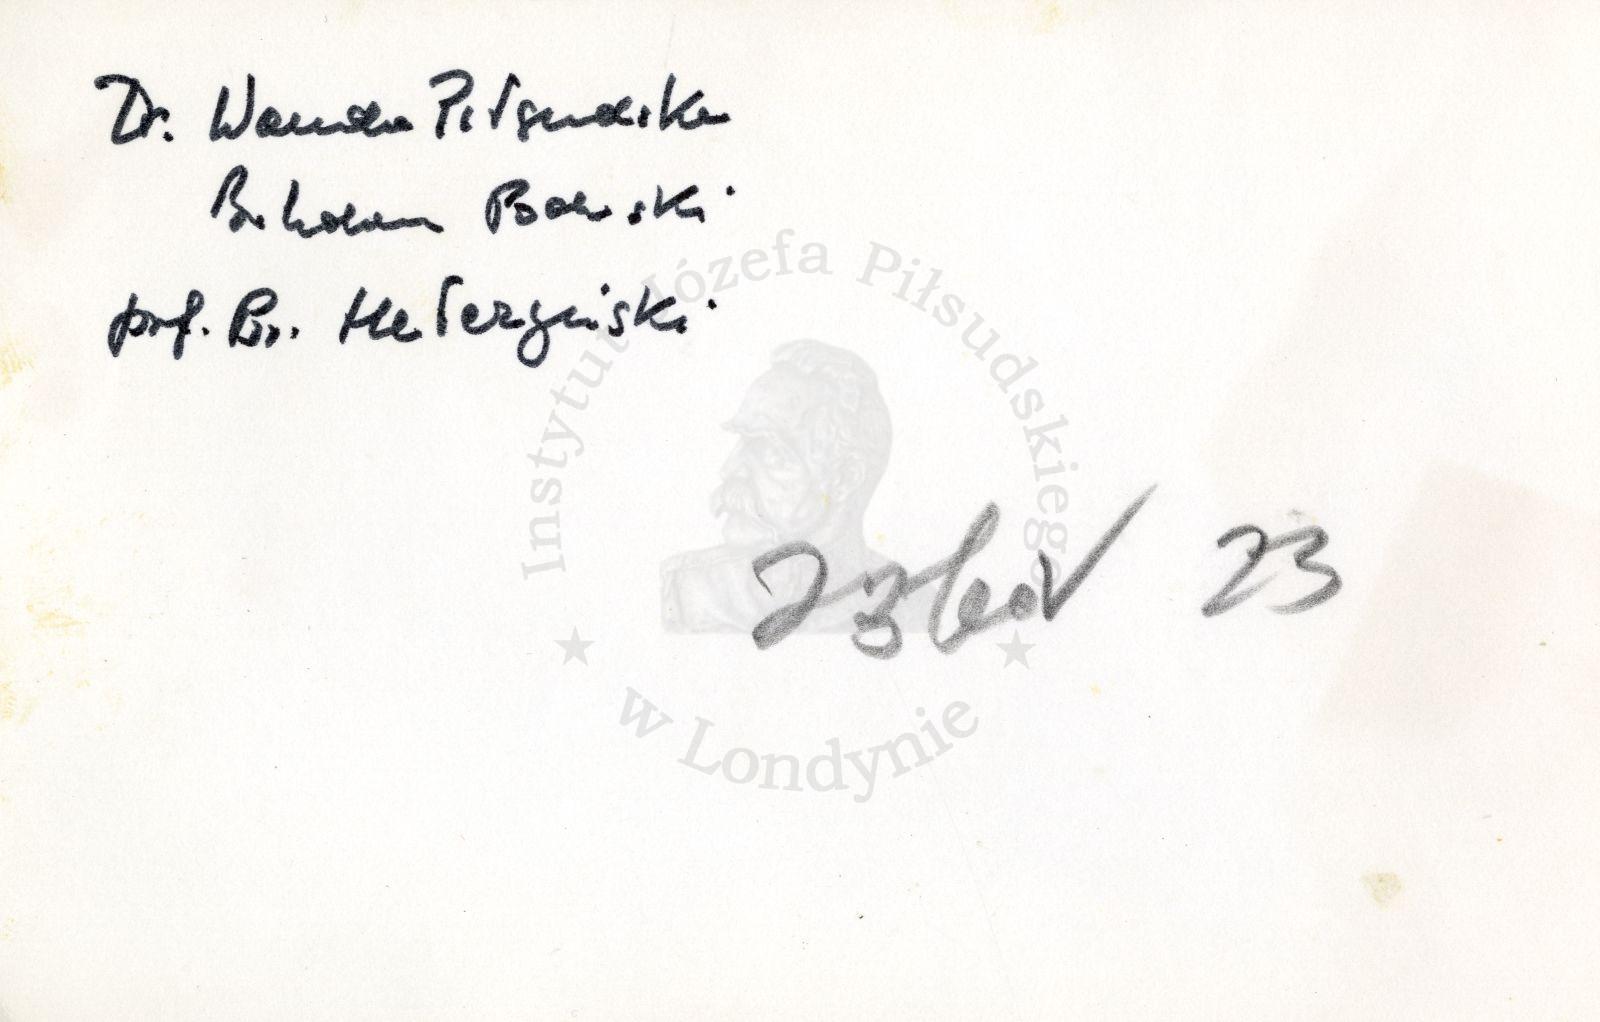 Dr. Wanda Piłsudska
Bohdan
prof. Br. Hełczyński
Instytut Józefa Piłsudskiego
23
w Londynie